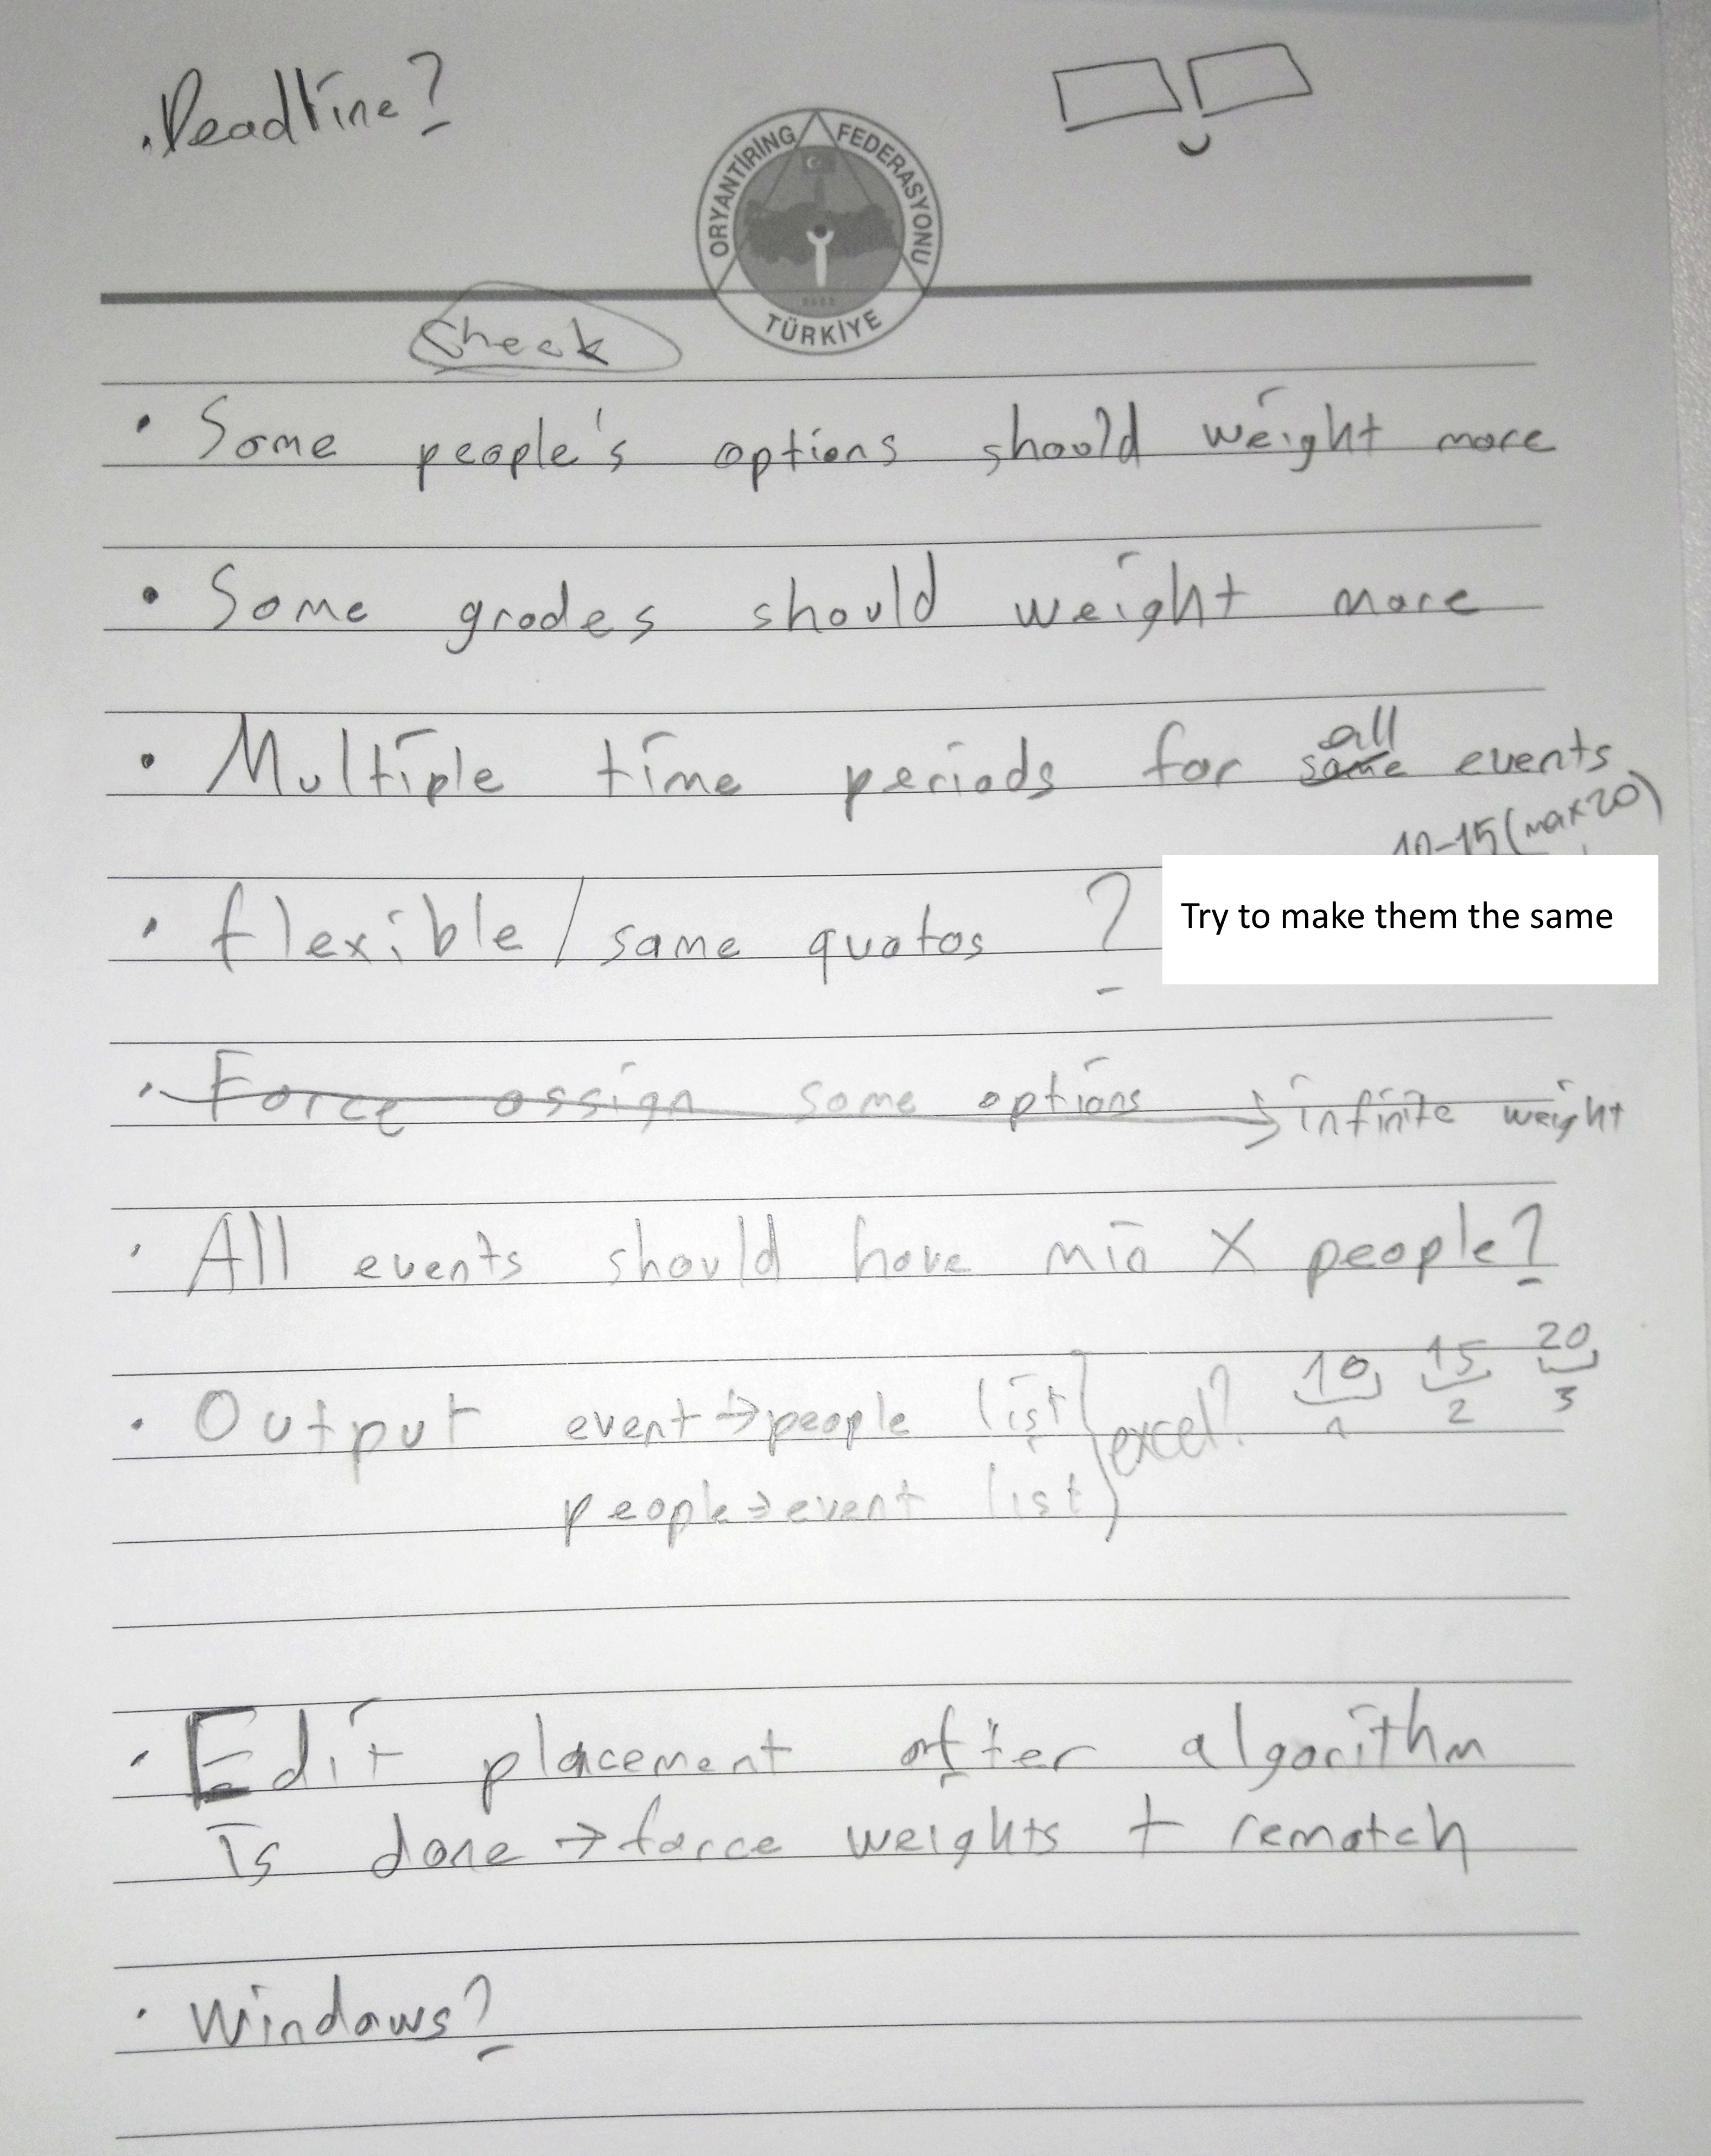 .Deadline?
ORYANTİRİNG FEDERASYONU
2002
TÜRKİYE
Check
• Some people's options should weight more
• Some grades should weight more
all
• Multiple time periods for same events
10-15 (max 20)
• flexible / same quotas ?
Try to make them the same
• Force assign some options → infinite weight
• All events should have min X people?
10 15 20
1 2 3
• Output event → people list excel?
people → event list
• Edit placement after algorithm
is done → force weights + rematch
• Windows?